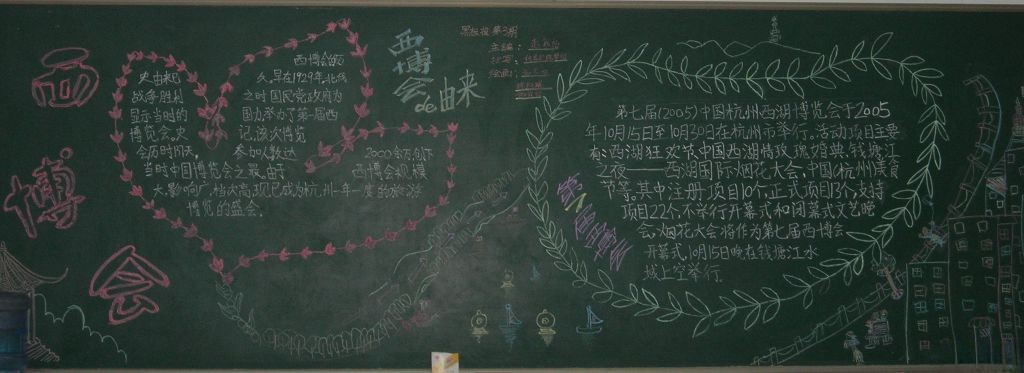 西
博
会
西博会的
历史由来已
久,早在1929年,北伐
战争胜利
之时国民党政府为
显示当时的
国力举办了第一届西
博览会,史
记,该次博览
会历时
参加人数达
2000余万,创下
当时中国博览会之最,由于
西博会规模
大,影响广,档次高,现已成为杭州一年一度的旅游
博览的盛会。
西博会de由来
黑板报第3期
主编:
抄写:
绘画:
第七届西博会
第七届(2005)中国杭州西湖博览会于2005
年10月15日至10月30日在杭州市举行。活动项目主要
有:西湖狂欢节、中国西湖情玫瑰婚典、钱塘江
之夜——西湖国际烟花大会、中国杭州美食
节等。其中注册项目10个,正式项目13个,支持
项目22个。不举行开幕式和闭幕式文艺晚
会。烟花大会将作为第七届西博会
开幕式,10月15日晚在钱塘江水
域上空举行。